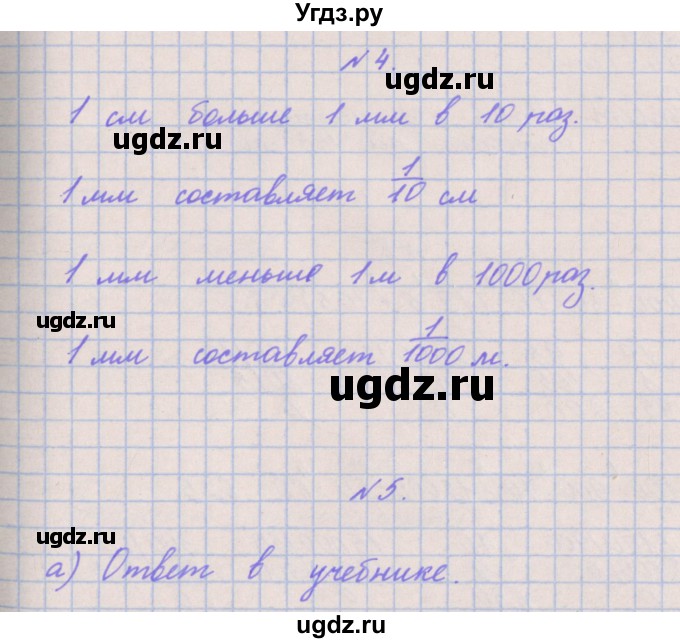 Угдз.ру
N 4.
ugdz.ru
1 см больше 1 мм в 10 раз.
ugdz.ru
1 мм составляет 1/10 см
1 мм меньше 1 м в 1000 раз.
ugdz.ru
1 мм составляет 1/1000 м.
ugdz.ru
N 5.
ugdz.ru
а) Ответ в учебнике.
ugdz.ru